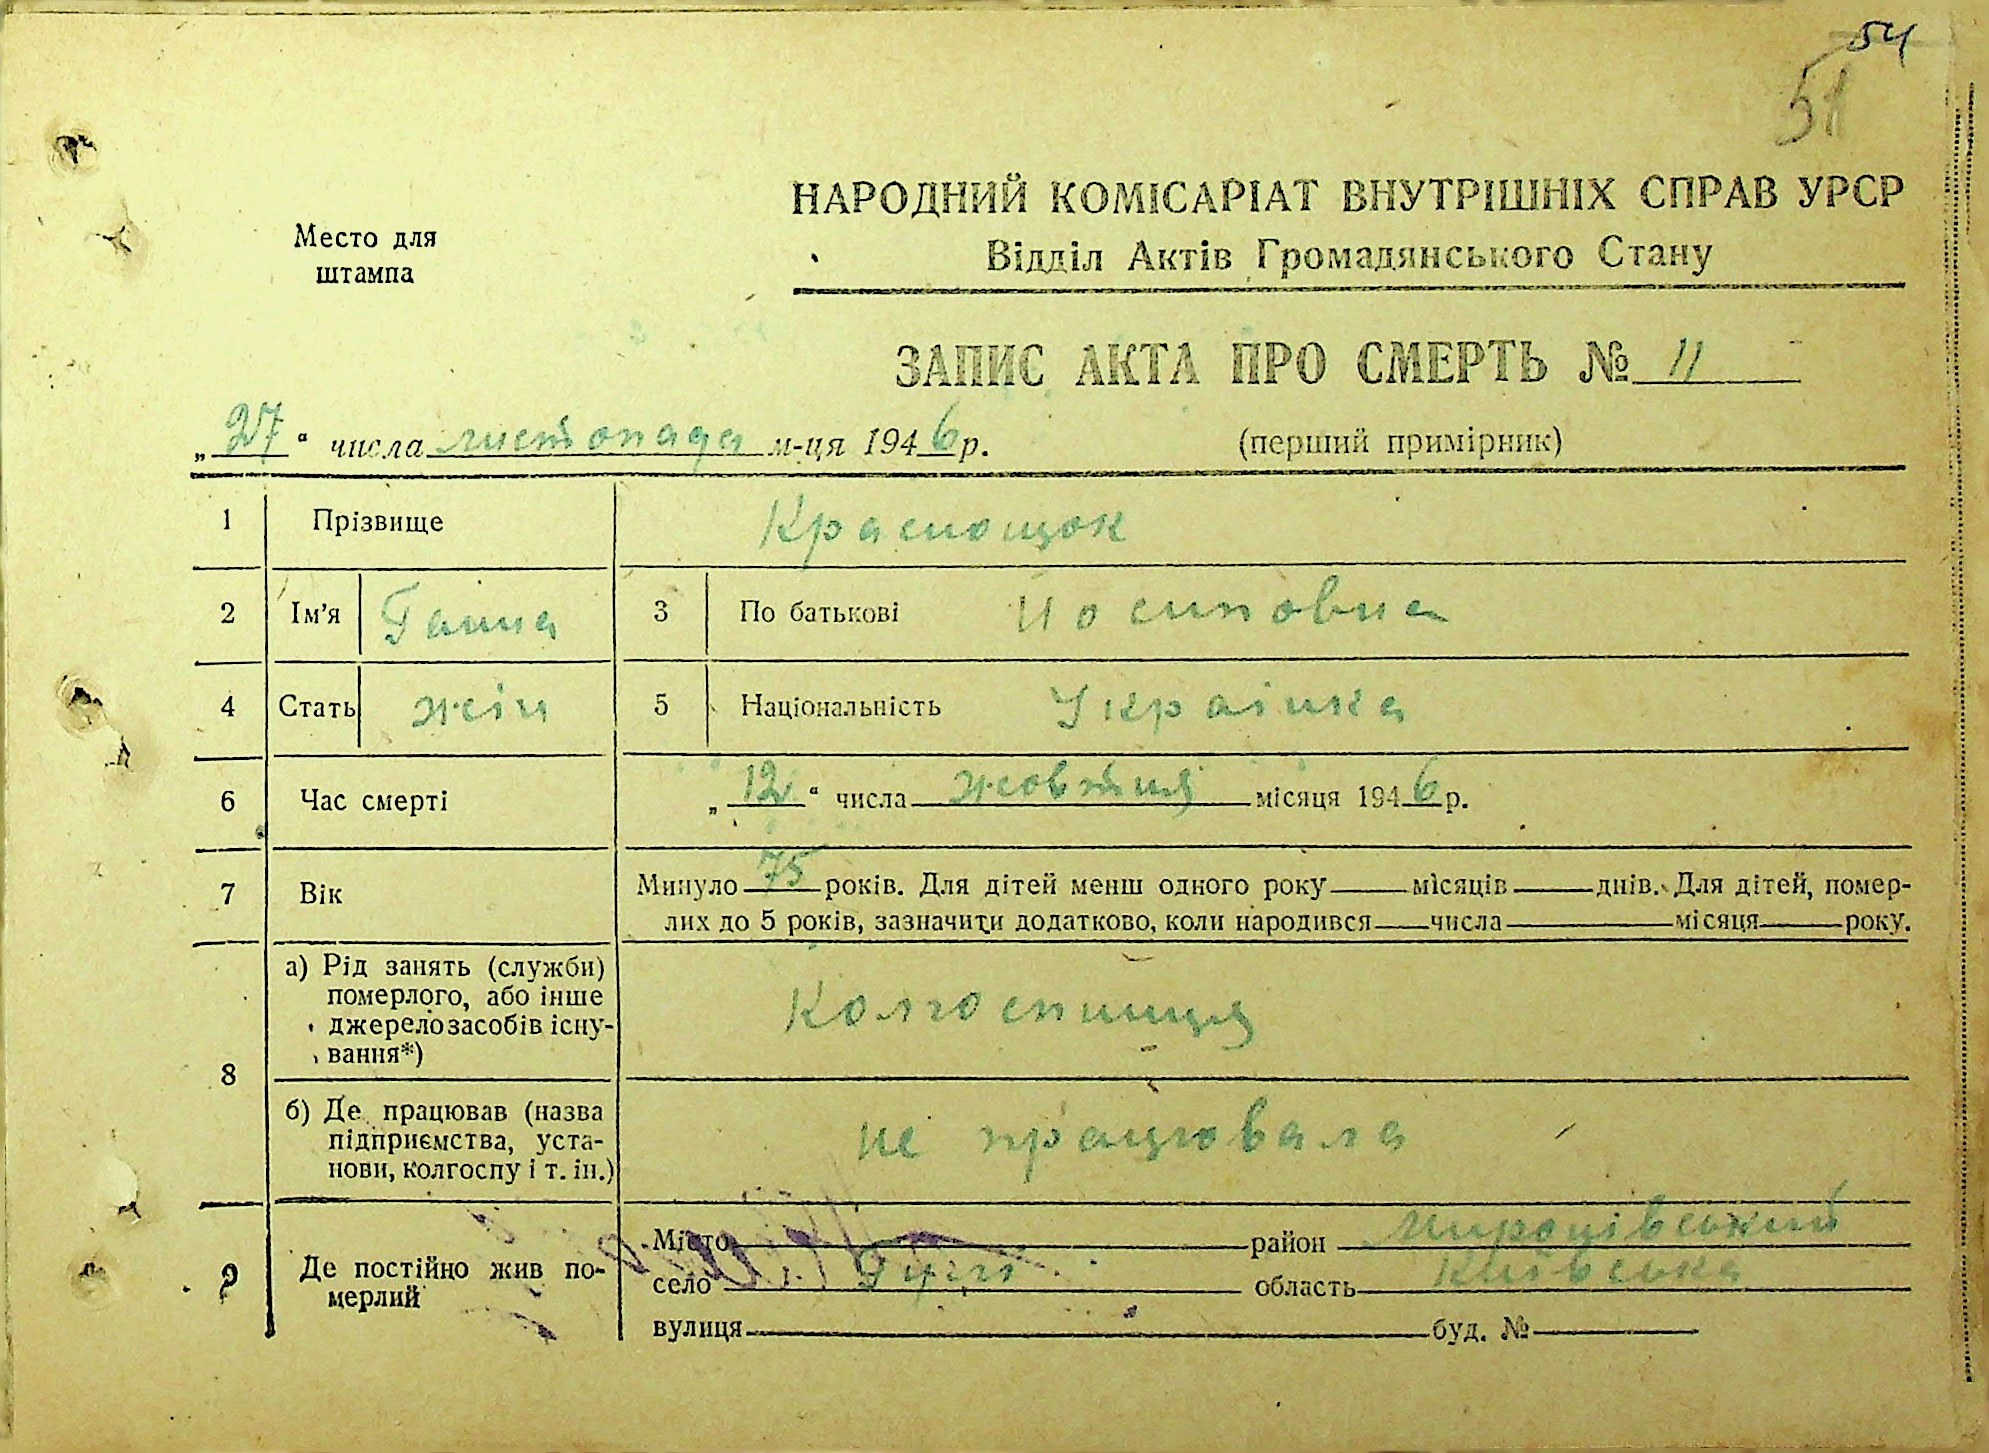 54
51
НАРОДНИЙ КОМІСАРІАТ ВНУТРІШНІХ СПРАВ УРСР
Відділ Актів Громадянського Стану
Место для
штампа
ЗАПИС АКТА ПРО СМЕРТЬ № 11
„27“ числа листопада м-ця 1946 р.
(перший примірник)
1 Прізвище Краснощок
2 Ім'я Ганна 3 По батькові Иосиповна
4 Стать жін 5 Національність Украінка
6 Час смерті „12“ числа жовтня місяця 1946 р.
7 Вік Минуло 75 років. Для дітей менш одного року місяців днів. Для дітей, помер-
лих до 5 років, зазначити додатково, коли народився числа місяця року.
8 а) Рід занять (служби)
померлого, або інше
джерело засобів існу-
вання*)
Колгоспниця
б) Де працював (назва
підприємства, уста-
нови, колгоспу і т. ін.)
не працювала
9 Де постійно жив по-
мерлий
Місто район
село область Київська
вулиця буд. №